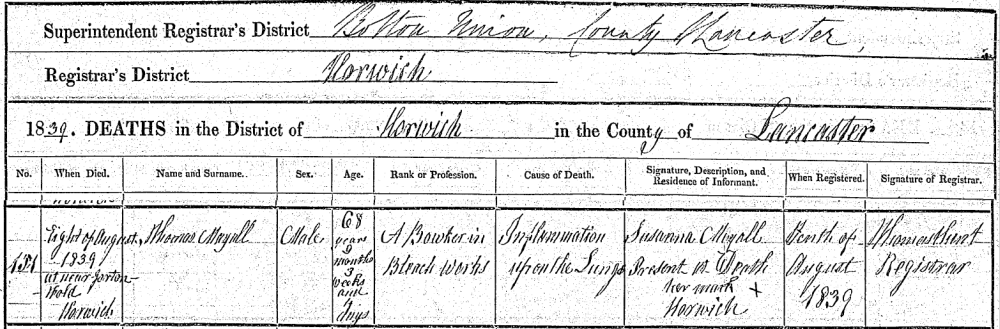 Superintendent Registrar's District Bolton Union, County Lancaster,
Registrar's District Horwich
1839. DEATHS in the District of Horwich in the County of Lancaster
No. When Died. Name and Surname. Sex. Age. Rank or Profession. Cause of Death. Signature, Description, and Residence of Informant. When Registered. Signature of Registrar.
Eight of August
1839
at near
Horwich
Thomas Mayall
Male
68
years
months
3
weeks
and
days
A Bowker in
Bleach Works
Inflammation
upon the Lungs
Susanna Mayall
Present at Death
her mark +
Horwich
Tenth of
August
1839
Registrar